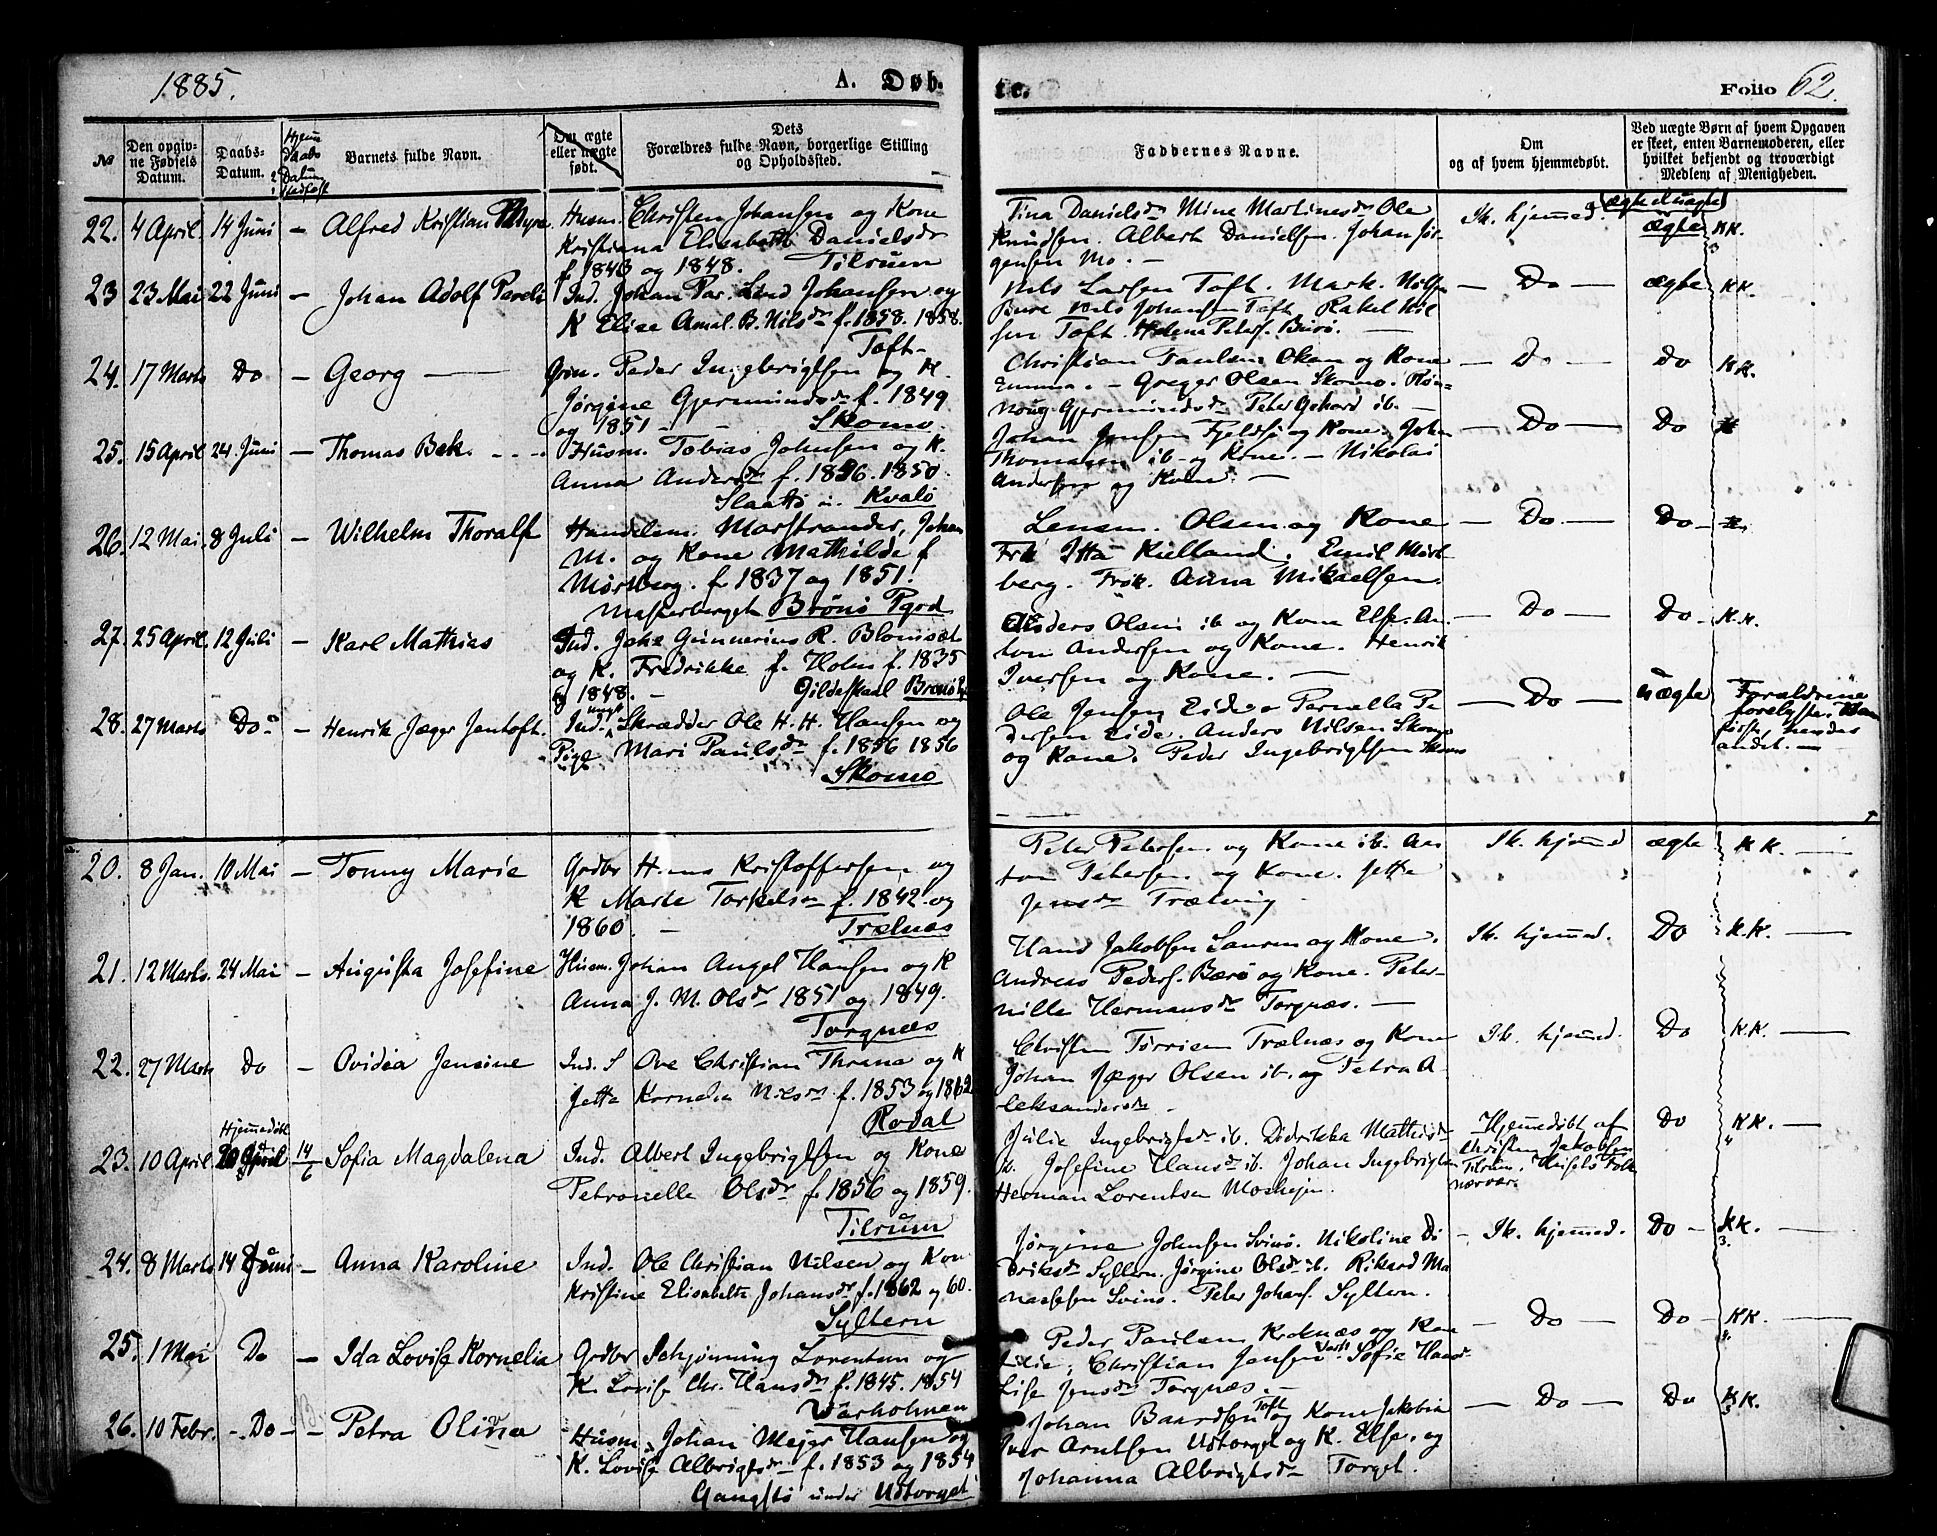 1885.
A. Døb-
te.
Folio 62.
No
Den opgiv-
ne Fødsels
Datum.
Daabs-
Datum.
Hjem
Daabs
Datum
Barnets fulde Navn.
Om ægte
eller uægte
født.
Dets
Forældres fulde Navn, borgerlige Stilling
og Opholdssted.
Faddernes Navne.
Om
og af hvem hjemmedøbt.
Ved uægte Børn af hvem Opgaven
er skeet, enten Barnemoderen, eller
hvilket bekjendt og troværdigt
Medlem af Menigheden.
22. 4 April. 14 Juni - Alfred Kristian
Husm. Christen Johansen og Kone
Kristiana Elisabeth Danielsdr
f. 1843 og 1848. Tilrum
Tina Danielsdr Mine Martinesdr Ole
Knudsen. Albert Danielsen. Johan Jør-
gensen Mo. -
Ik. hjemmed.
ægte l uægte
ægte
KK.
3
23 23 Mai 22 Juni - Johan Adolf Pareli
Ind. Johan Par. Lind Johansen og
K Elise Amal. B. Nilsdr f. 1858. 1858.
Toft -
Nils Larsen Toft. Mark. Nilsen
Nils Johansen Toft. Rakel Nil
sen Toft. Helena Peters. -
- Do - ægte KK.
24. 17 Marts Do - Georg -
Grm. Peder Ingebrigtsen og K.
Jørgine Gjermundsdr f. 1849
og 1851 - Skomo.
Christian Paulsen og Kone
Emma. - Greger Olsen Skomo. Røn-
noug Gjermundsdr Peter ib. -
- Do - Do KK.
25. 15 April 24. Juni - Thomas Bek. - - -
Husm. Tobias Johnsen og K.
Anna Andersdr f. 1836. 1850
Slaattø u. Kvalø
Johan Jensen Fjeldsø og Kone. Joh.
Thomasen ib. og Kone. - Nikolai
Andersen og Kone. -
- Do - Do
26. 12 Mai. 8 Juli - Wilhelm Thoralf
Handelsm. Marstrander, Johan
M. og Kone Mathilde f
Mørlberg. f. 1837 og 1851.
Brønø Pgrd
Lensm. Olsen og Kone
Frk Itta Kielland. Emil Mørl-
berg. Frøk. Anna Mikaelsen.
- Do - Do -
27. 25 April. 12 Juli - Karl Mathias
Ind. Johs Gunnerius R. Blomsøt
og K. Fredrikke f. Holm f. 1835
og 1848. - Gildeskaal Brønø
Anders Olsen ib og Kone Else. An-
ton Andersen og Kone. Henrik
Iversen og Kone. -
- Do - Do - K.K.
28. 27 Marts Do - Henrik Jæger Jentoft.
Ind. ungk Skrædder Ole H. H. Hansen og
Pige Mari Paulsdr f. 1856 1856
Skomo
Ole Jensen Eide Pernella Pe
dersen Eide. Anders Nilsen Skomo
og Kone. Peder Ingebrigtsen Skomo
- Do - uægte
Forældrene
forlovede.
hendes
andet. -
20. 8 Jan. 10 Mai - Tonny Marie
Grdbr Hans Kristoffersen og
K Marte Torkelsdr f. 1842 og
1860. - Trælnæs
Peter Petersen og Kone ib. An
ton Petersen og Kone. Jetta
Jensdr Trælvig
Ik. hjemmed ægte KK. -
21. 12 Marts. 24 Mai - Augusta Josefine
Husm. Johan Angel Hansen og K
Anna J. M. Olsdr 1851 og 1849.
Torgnæs
Hans Jakobsen og Kone.
Andreas Peders. Bærø og Kone. Peter-
nille Hermansdr Torgnæs. -
Ik. hjemmed. Do KK. -
22. 27 Marts Do - Ovidia Jensine
Ind. S Ove Christian Thrana og K
Jetta Kornelia Nilsdr f. 1853 og 1862
Rodal
Christen Torrisen Trælnæs og Kone
Johan Jæger Olsen ib. og Petra A-
leksandersdr -
Ik. hjemmed. Do KK. -
Hjemmedøbt
23. 10 April 20 April 14/6 - Sofia Magdalena
Ind. Albert Ingebrigtsen og Kone
Petronelle Olsdr f. 1856 og 1859.
Tilrum
Julie Ingebrigtsdr ib. Didrikka Mathisdr
ib. Josefine Hansdr ib. Johan Ingebrigtsen
Herman Lorentsen Moshejen.
- Hjemmedøbt af
Christen Jakobsen
Tilrum. Folk
nærvær.
Do KK. -
24. 8 Marts 14 Juni - Anna Karoline
Ind. Ole Christian Nilsen og Kone
Kristine Elisabeth Johansdr f. 1862 og 60.
Syltern
Jørgine Johnsen Svinø. Nikoline Di
driksdr Syltern. Jørgine Olsdr ib. Rikard Ma
nassesen Svinø. Peter Johans. Syltern.
- Ik. hjemmed. Do - KK. -
3.
25. 1 Mai Do - Ida Lovise Kornelia
Grdbr Schjønning Lorentsen og
K. Lovise Chr. Hansdr f. 1845. 1854
Værholmen
Peder Paulsen Kroknæs og Kone
Julie, Christian Jensen Sofie Hansdr
Lise Jensdr Torgnæs. -
- Do - Do - KK.
26. 10 Febr. - Do - - Petra Olivia
Husm. Johan Mejer Hansen og
K. Lovise Albrigtsdr f. 1853 og 1854
Gangstø under Udtorget
Johan Baardsen Toft og Kone Jakobia
Iver Arntsen Udtorget og K. Else. og
Johanna Albrigtsdr Torget.
- Do - Do KK.
3